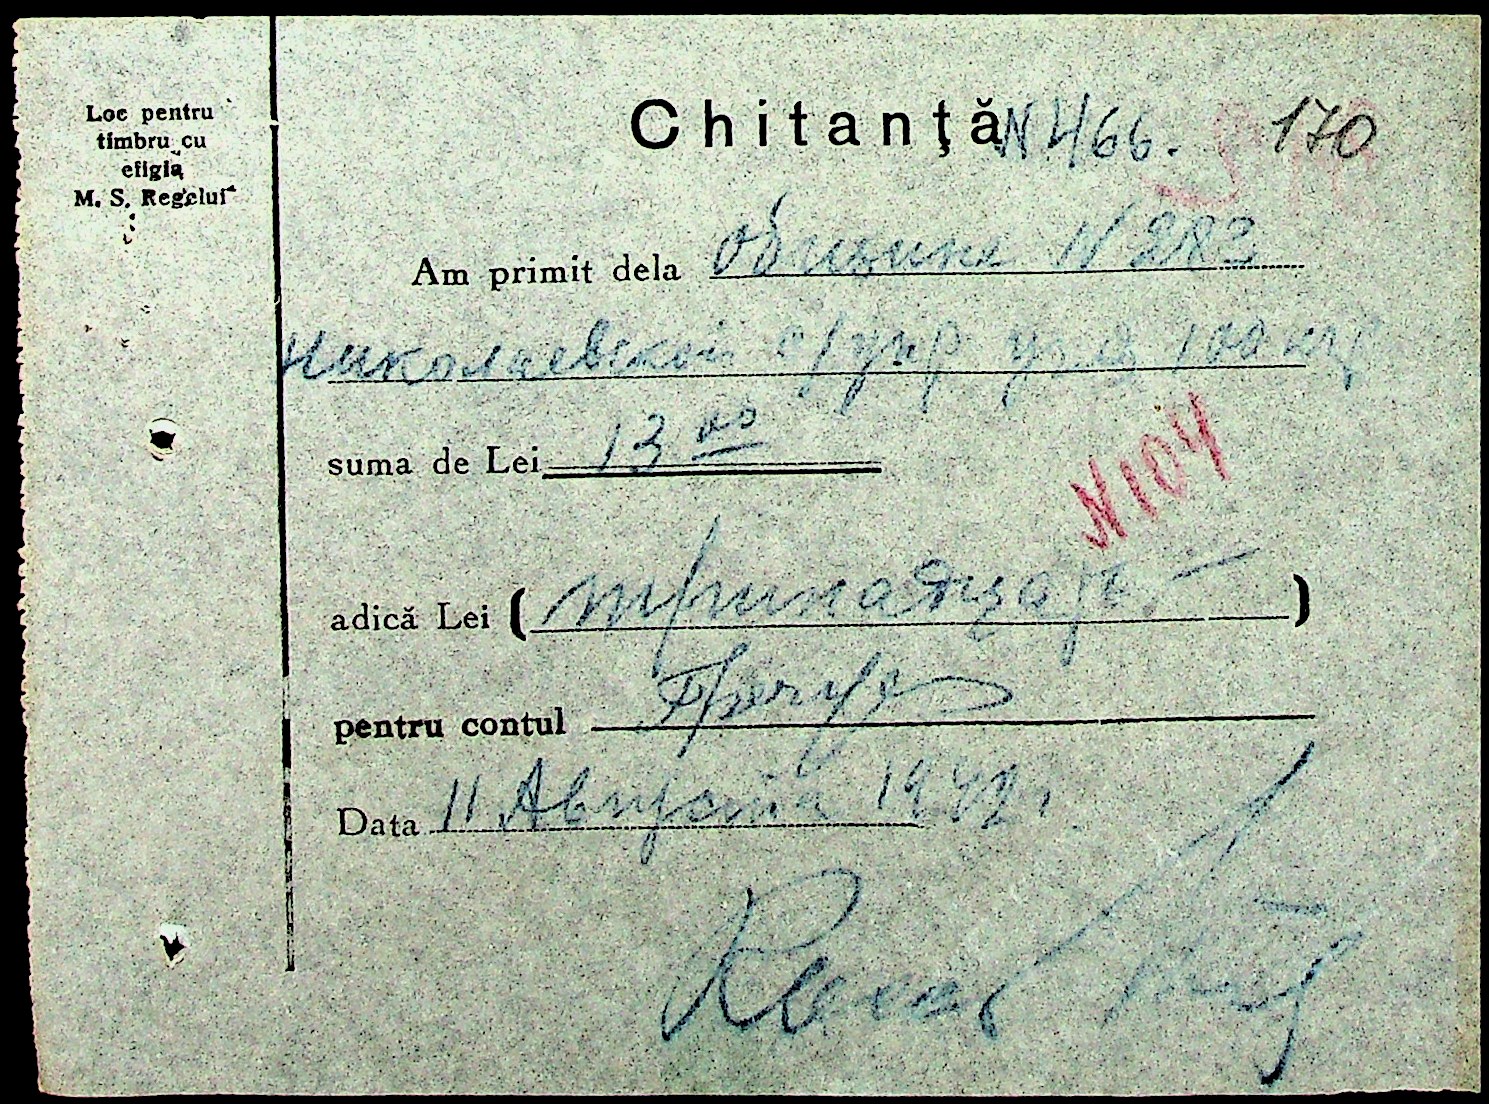 Loc pentru
timbru cu
efigia
M. S. Regelui
Chitanță N 466. 170
Am primit dela общины N 283
Николаевской с/упр уз. я 100
suma de Lei 13 00
N 104
adică Lei (тринадцать. —)
pentru contul
Data 11 Августа 1942